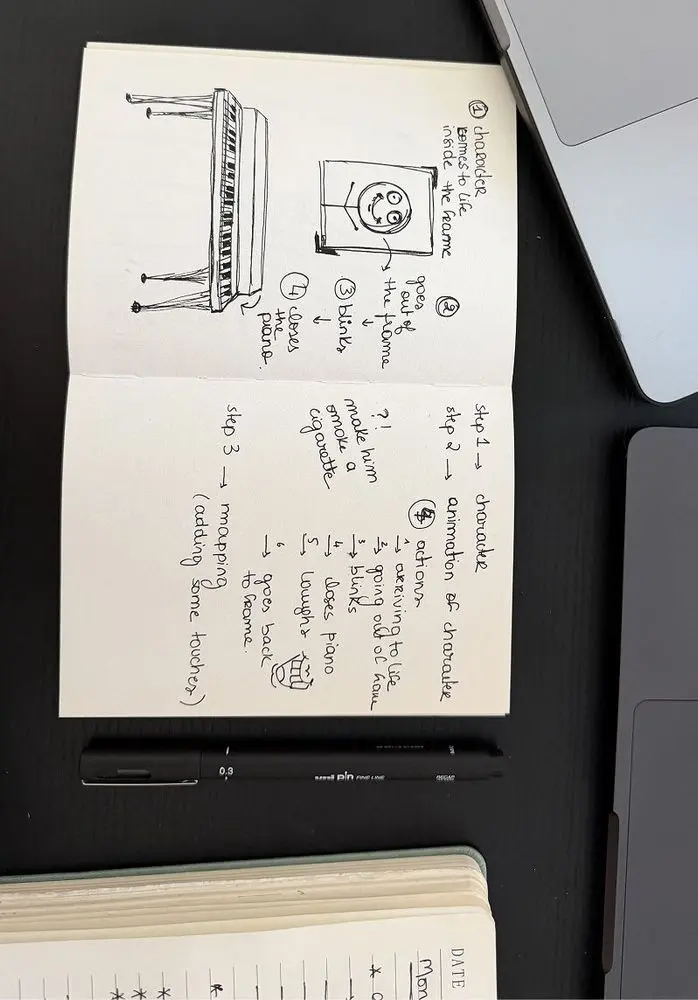 ① character
comes to life
inside the frame
②
goes
out of
the frame
③ blinks
④ closes
the
piano.
step 1 → character
step 2 → animation of character
actions
1 → arriving to life
2 → going out of frame
3 → blinks
4 → closes piano
5 → laughs
6 → goes back
to frame.
?!
make him
smoke a
cigarette
step 3 → mapping
(adding some touches)
0.3
uni pin FINE LINE
DATE
Mon